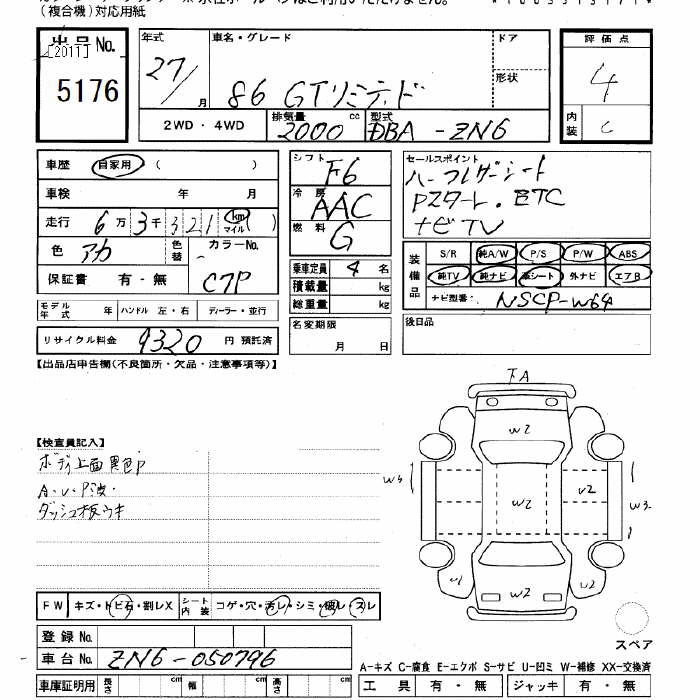 (複合機)対応用紙
出品No.
[2011]
5176
年式
27/
月
車名・グレード
86 GTリミテッド
ドア
形状
評価点
4
内装
C
2WD・4WD
排気量
2000 cc
型式
DBA-ZN6
車歴 自家用 ( )
車検 年 月
走行 6万3千321 km マイル ( )
色 アカ 色替
カラーNo.
C7P
保証書 有・無
モデル年式 年 ハンドル 左・右 ディーラー・並行
リサイクル料金 9320 円 預託済
シフト
F6
冷房
AAC
燃料
G
乗車定員 4 名
積載量 kg
総重量 kg
名変期限
月 日
セールスポイント
ハーフレザーシート
Pスタート.ETC
ナビTV
装備品
S/R 純A/W P/S P/W ABS
純TV 純ナビ 革シート 外ナビ エアB
ナビ型番: NSCP-W64
後日品
【出品店申告欄(不良箇所・欠品・注意事項等)】
【検査員記入】
ボディ上面異色P
A・U・P波・
ダッシュ板ウキ
下A
W2
W3
W2
U2
W3
U1
W2
U2
スペア
FW キズ・トビ石・割レX
シート内装 コゲ・穴・汚レ・シミ・破レ・スレ
登録No.
車台No. ZN6-050796
車庫証明用 長さ cm 幅 cm 高さ cm
A-キズ C-腐食 E-エクボ S-サビ U-凹ミ W-補修 XX-交換済
工具 有・無 ジャッキ 有・無